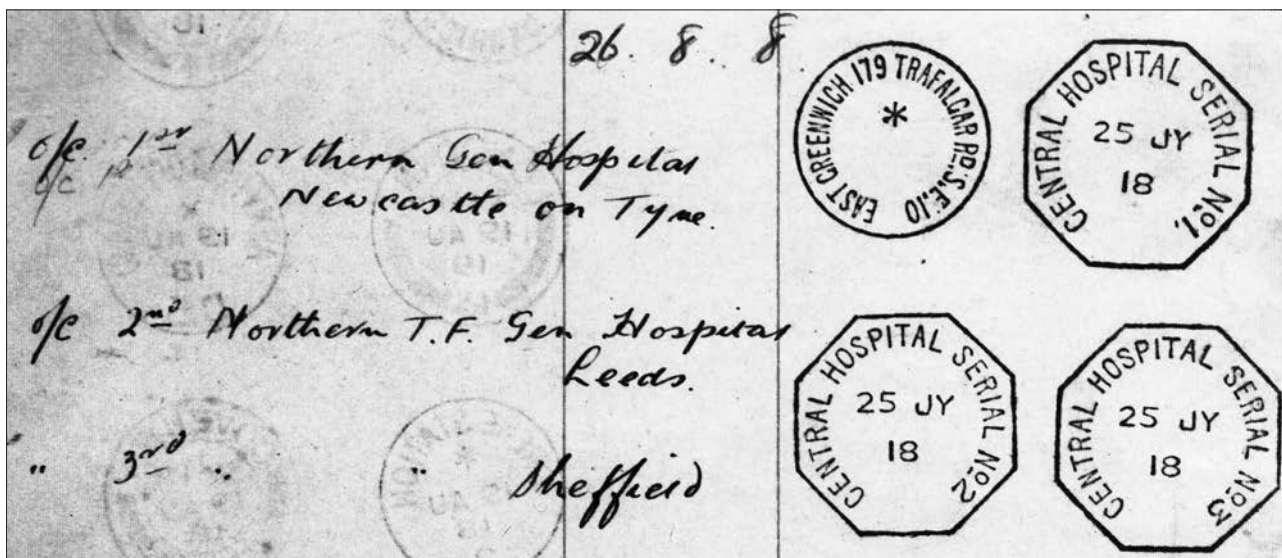 26. 8. 8
o/c. 1st Northern Gen Hospital
o/c 1st
Newcastle on Tyne.
o/c 2nd Northern T.F. Gen Hospital
Leeds.
" 3rd " " Sheffield
EAST GREENWICH 179 TRAFALGAR RD. S.E.10
*
CENTRAL HOSPITAL SERIAL No1.
25 JY
18
CENTRAL HOSPITAL SERIAL No2
25 JY
18
CENTRAL HOSPITAL SERIAL No3
25 JY
18